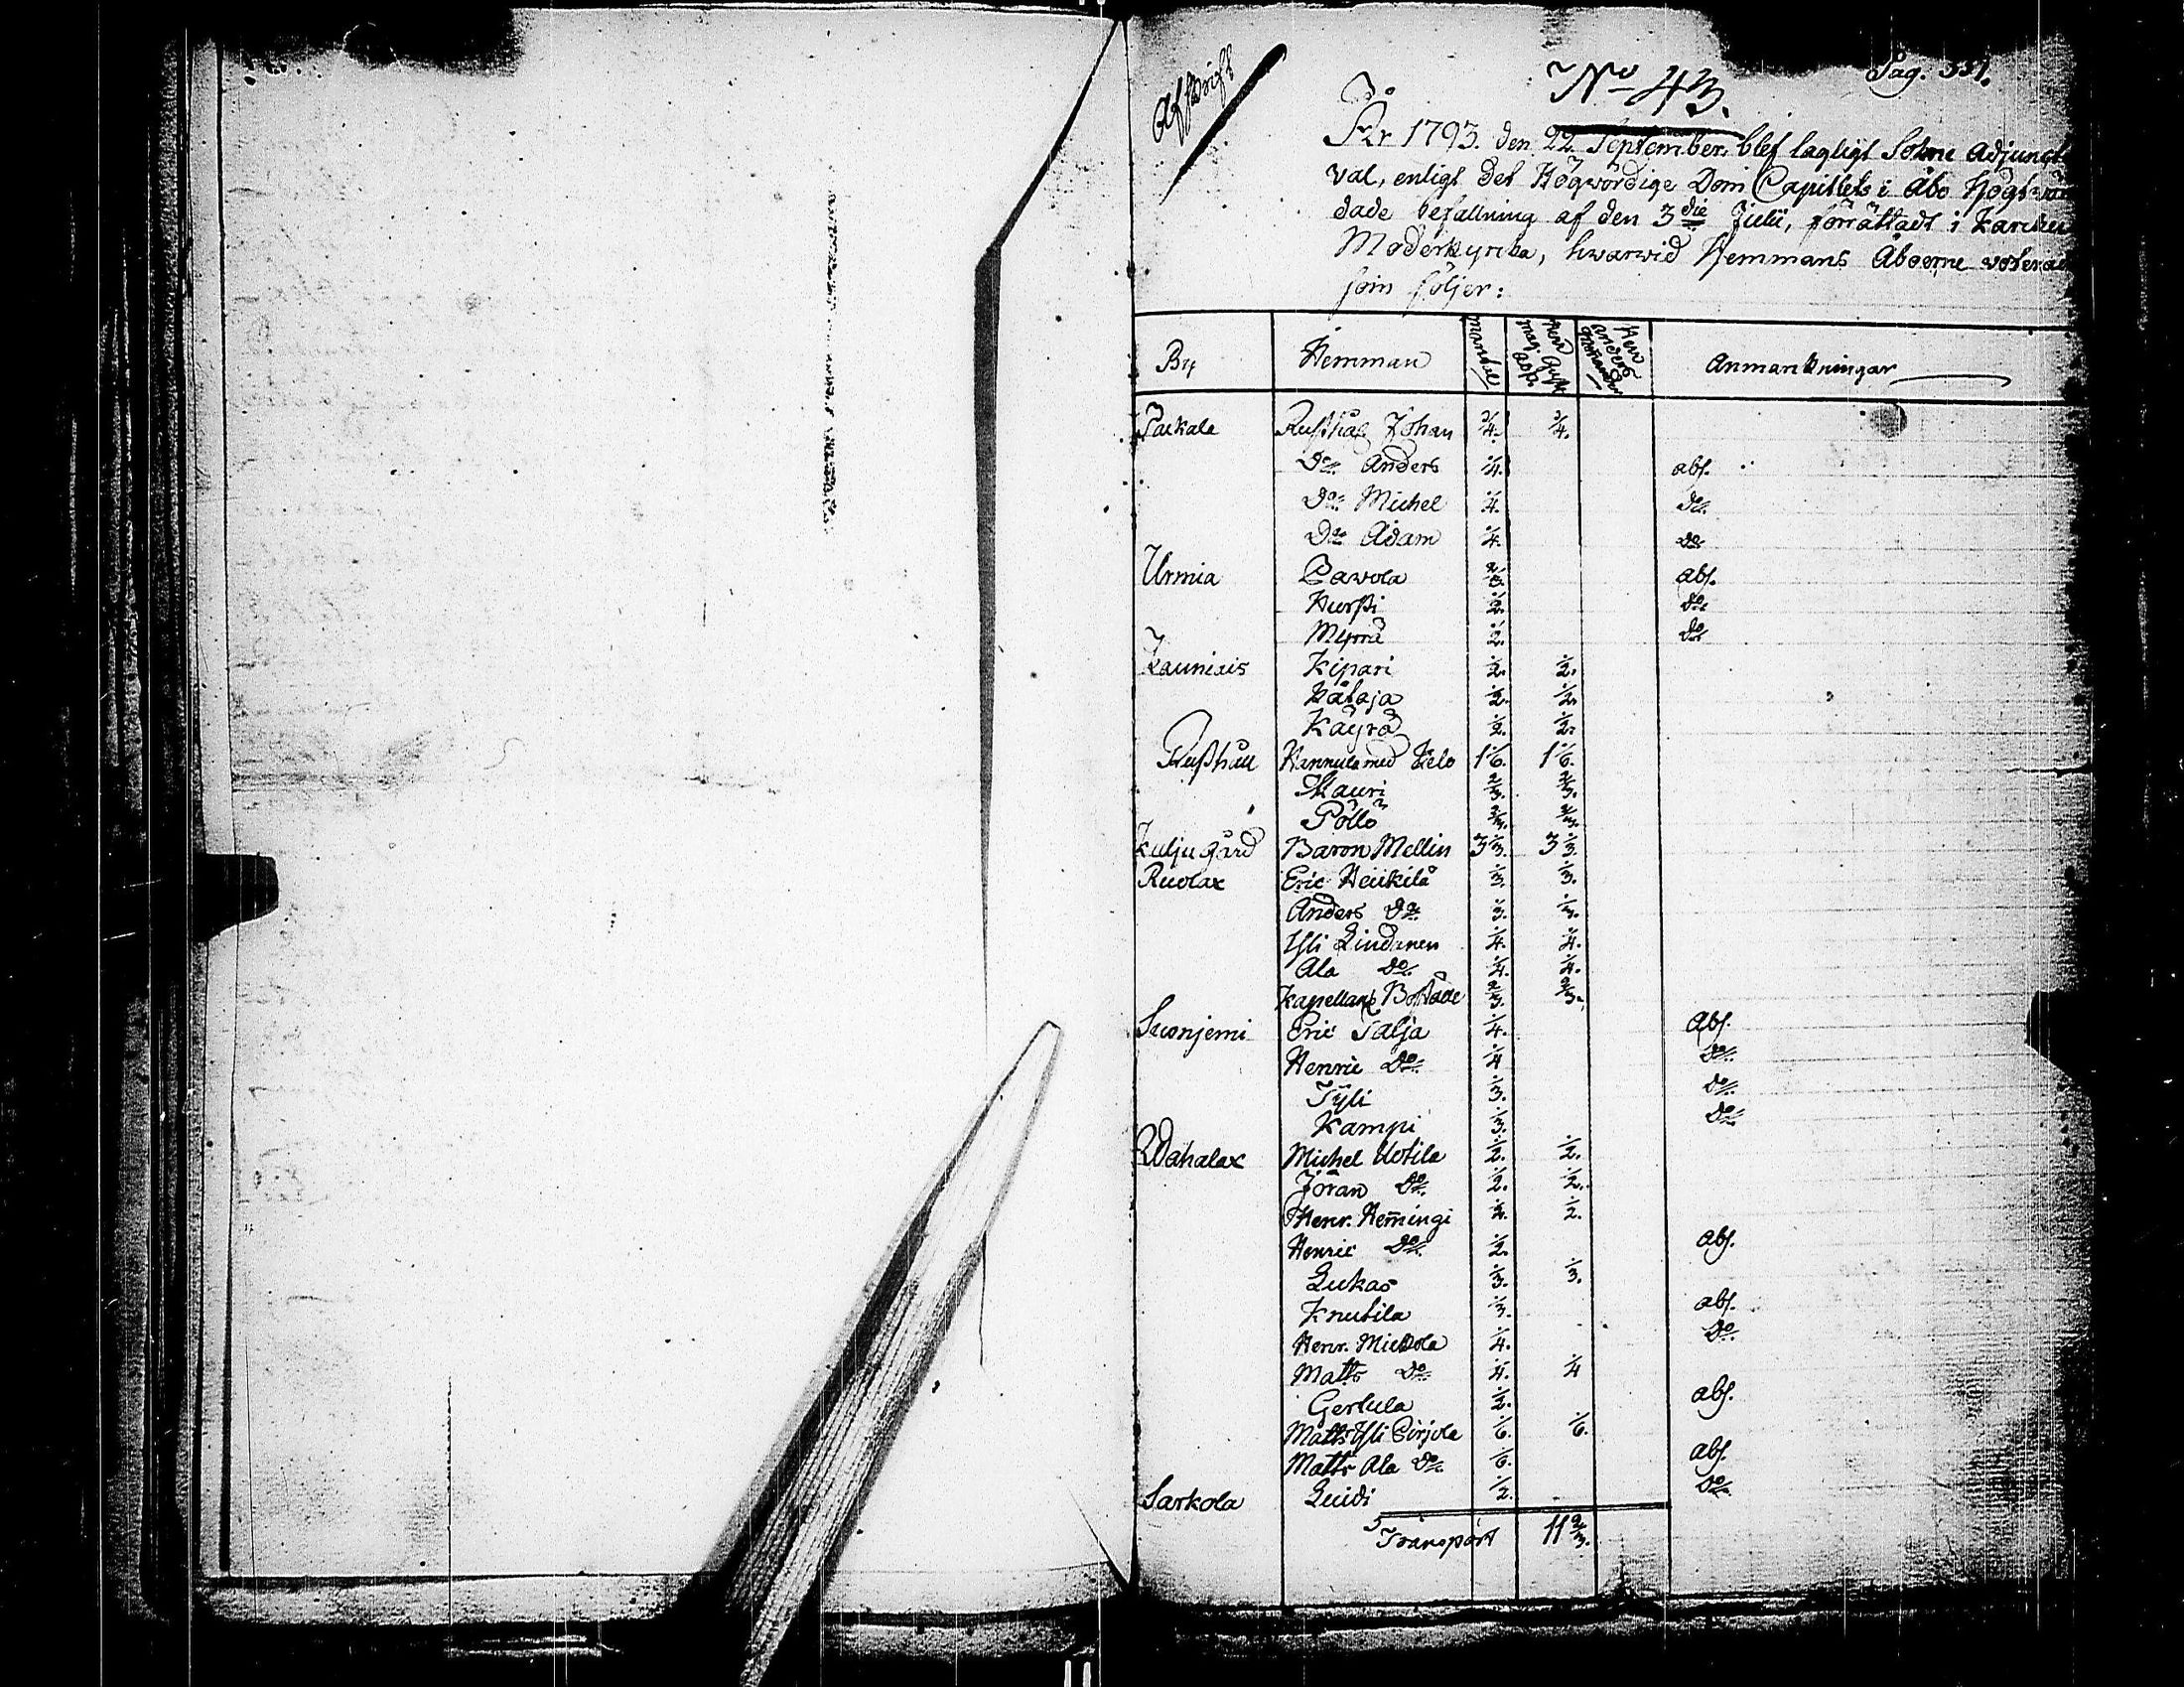 Afskrift
No 43.
Pag. 351.
År 1793. den 22 September. blef lagligt Sokne Adjunct
val, enligt det Högwördige Dom Capitlets i Åbo Högtwör
dade befallning af den 3die Julii, förrättadt i Karcku
Moderkyrcka, hwarwid Hemmans Åboerne votera
som följer:
By Hemman Mantal Herr Mag. Asp. Herr Anders Anmärkningar
Palkala Rusthål. Johan 3/4. 3/4.
Do Anders 1/4. abs.
Do Michel 1/4. do
Do Adam 1/4. do
Urmia Pavola 2/3. abs.
Kurssi 1/2. do
Myrrä 1/2. do
Kauniais Kipari 1/2. 1/2.
Kátaja 1/2. 1/2.
Käyrä 1/2. 1/2.
Russhau Hannula med Kelo 1 1/6. 1 1/6.
Mauri 2/3. 2/3.
Pöllö 2/3. 2/3.
Kulju gård Baron Mellin 3 1/3. 3 1/3.
Ruolax Eric Heikkilä 1/3. 1/3.
Anders do 1/3. 1/3.
Yli Lindanen 1/4. 1/4.
Ala do 1/4. 1/4.
Kapellans Boställe 2/3. 2/3.
Suonjemi Eric Talja 1/4. Abs.
Henric do 1/4 do
Tyli 1/3. do
Kampi 1/3. do
Wahalax Michel Uotila 1/2. 1/2.
Jöran do 1/2. 1/2.
Henr. Hem̄ingi 1/2. 1/2.
Henric do 1/2. abs.
Lukas 1/3. 1/3.
Knutila 1/3. abs.
Henr. Mickola 1/4. do
Matts do 1/4. 1/4
Gertula 1/2. abs.
Matts Yli Pirjola 1/6. 1/6.
Matts Ala do 1/6. abs.
Sarkola Luidi 1/2. do
Transport 11 2/3.